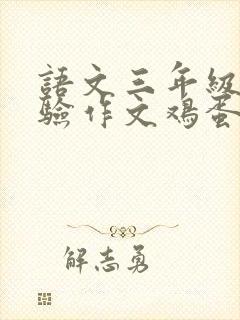 語文三年級
驗作文鸡蛋
解志勇